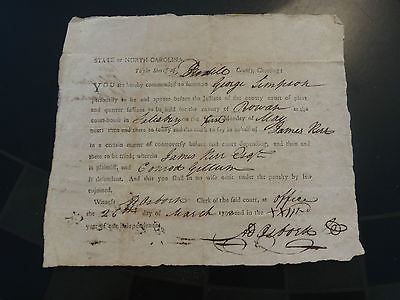 STATE OF NORTH CAROLINA.
To the Sheriff of Iredell County, Greeting:
YOU are hereby commanded to summon George Simpson
personally to be and appear before the Justices of the county court of pleas
and quarter sessions to be held for the county of Rowan at the
court-house in Salisbury on the first Monday of May
next then and there to testify and the truth to say in behalf of James Kerr
in a certain matter of controversy before said court depending, and then and
there to be tried; wherein James Kerr Esqr
is plaintiff, and Conrod
defendant. And this you shall in no wise omit under the penalty by law
enjoined.
Witness Clerk of the said court, at office
the 26th day of March in the
year of our independence.